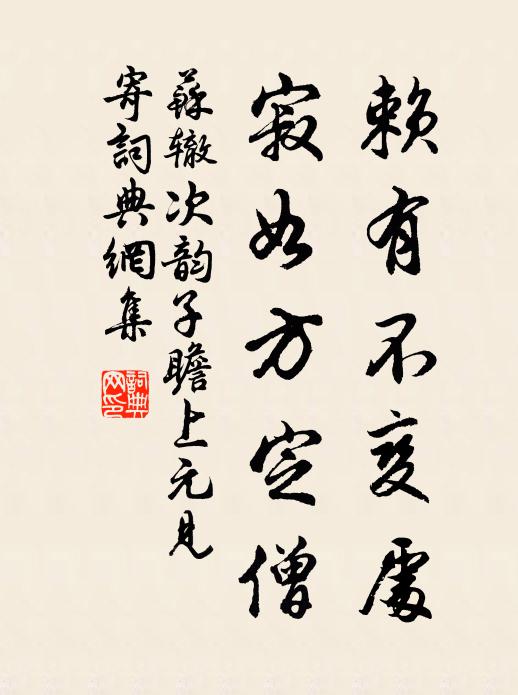 賴有不变處
寂如方定僧
蘇辙次韵子瞻上元見
寄詞典網集
詞典
网印